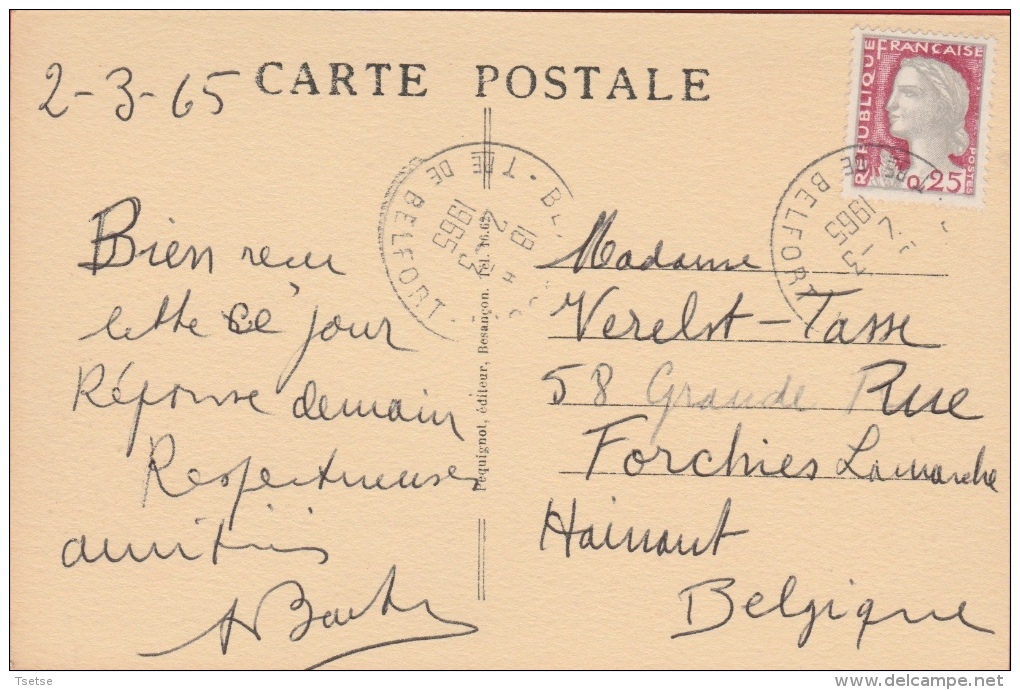 2-3-65
CARTE POSTALE
RÉPUBLIQUE FRANÇAISE
POSTES
0,25
TRE DE BELFORT
18 H
2-3
1965
TRE DE BELFORT
2-3
1965
Bien reçu
lettre ce jour
Réponse demain
Respectueuses
amitiés
Pequignot, éditeur, Besançon. Tél. 16.62
Madame
Verelst-Tasse
58 Grande Rue
Forchies Lamarche
Hainaut
Belgique
Tsetse
delcampe.net